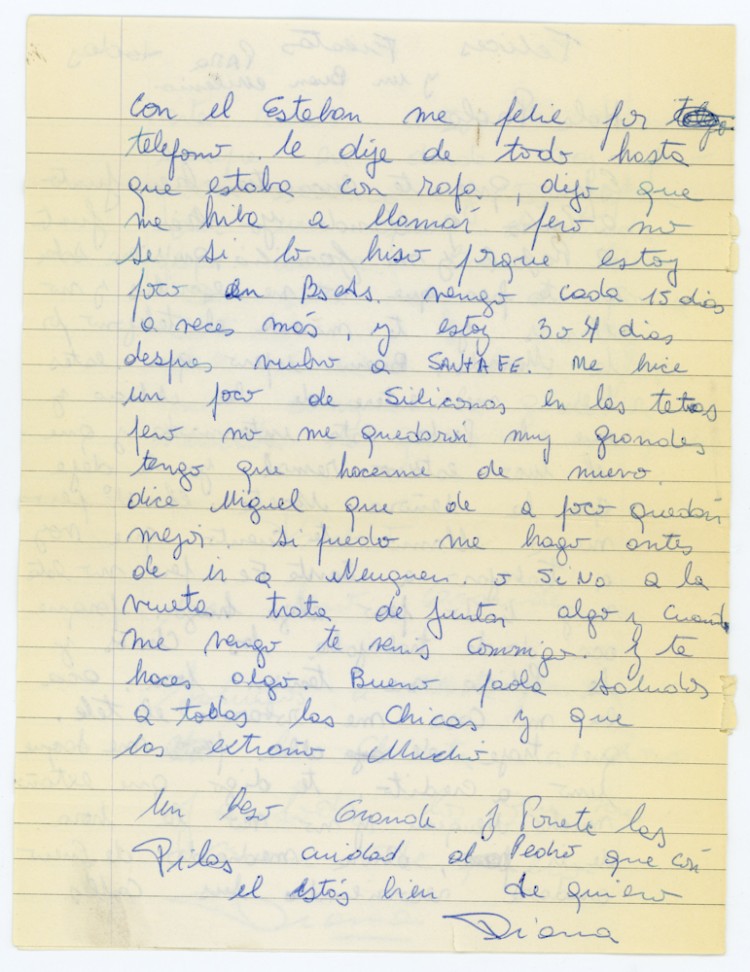 con el Esteban me pelie por
telefono. le dije de todo hasta
que estaba con rafa, dijo que
me hiba a llamar pero no
se si lo hiso porque estoy
poco en BsAs. vengo cada 15 dias
a veces más, y estoy 3 o 4 dias
despues vuelvo a SANTA FE. Me hice
un poco de Siliconas en las tetas
pero no me quedaron muy grandes
tengo que hacerme de nuevo.
dice Miguel que de a poco quedan
mejor. si puedo me hago antes
de ir a Neuquen o SiNo a la
vuelta trata de juntar algo y cuando
me vengo te venis conmigo. y te
haces algo. Bueno paola saludos
a todas las chicas y que
las extraño Mucho.
Un beso Grande y Ponete las
Pilas cuidad al Pedro que con
el estás bien te quiero
Diana